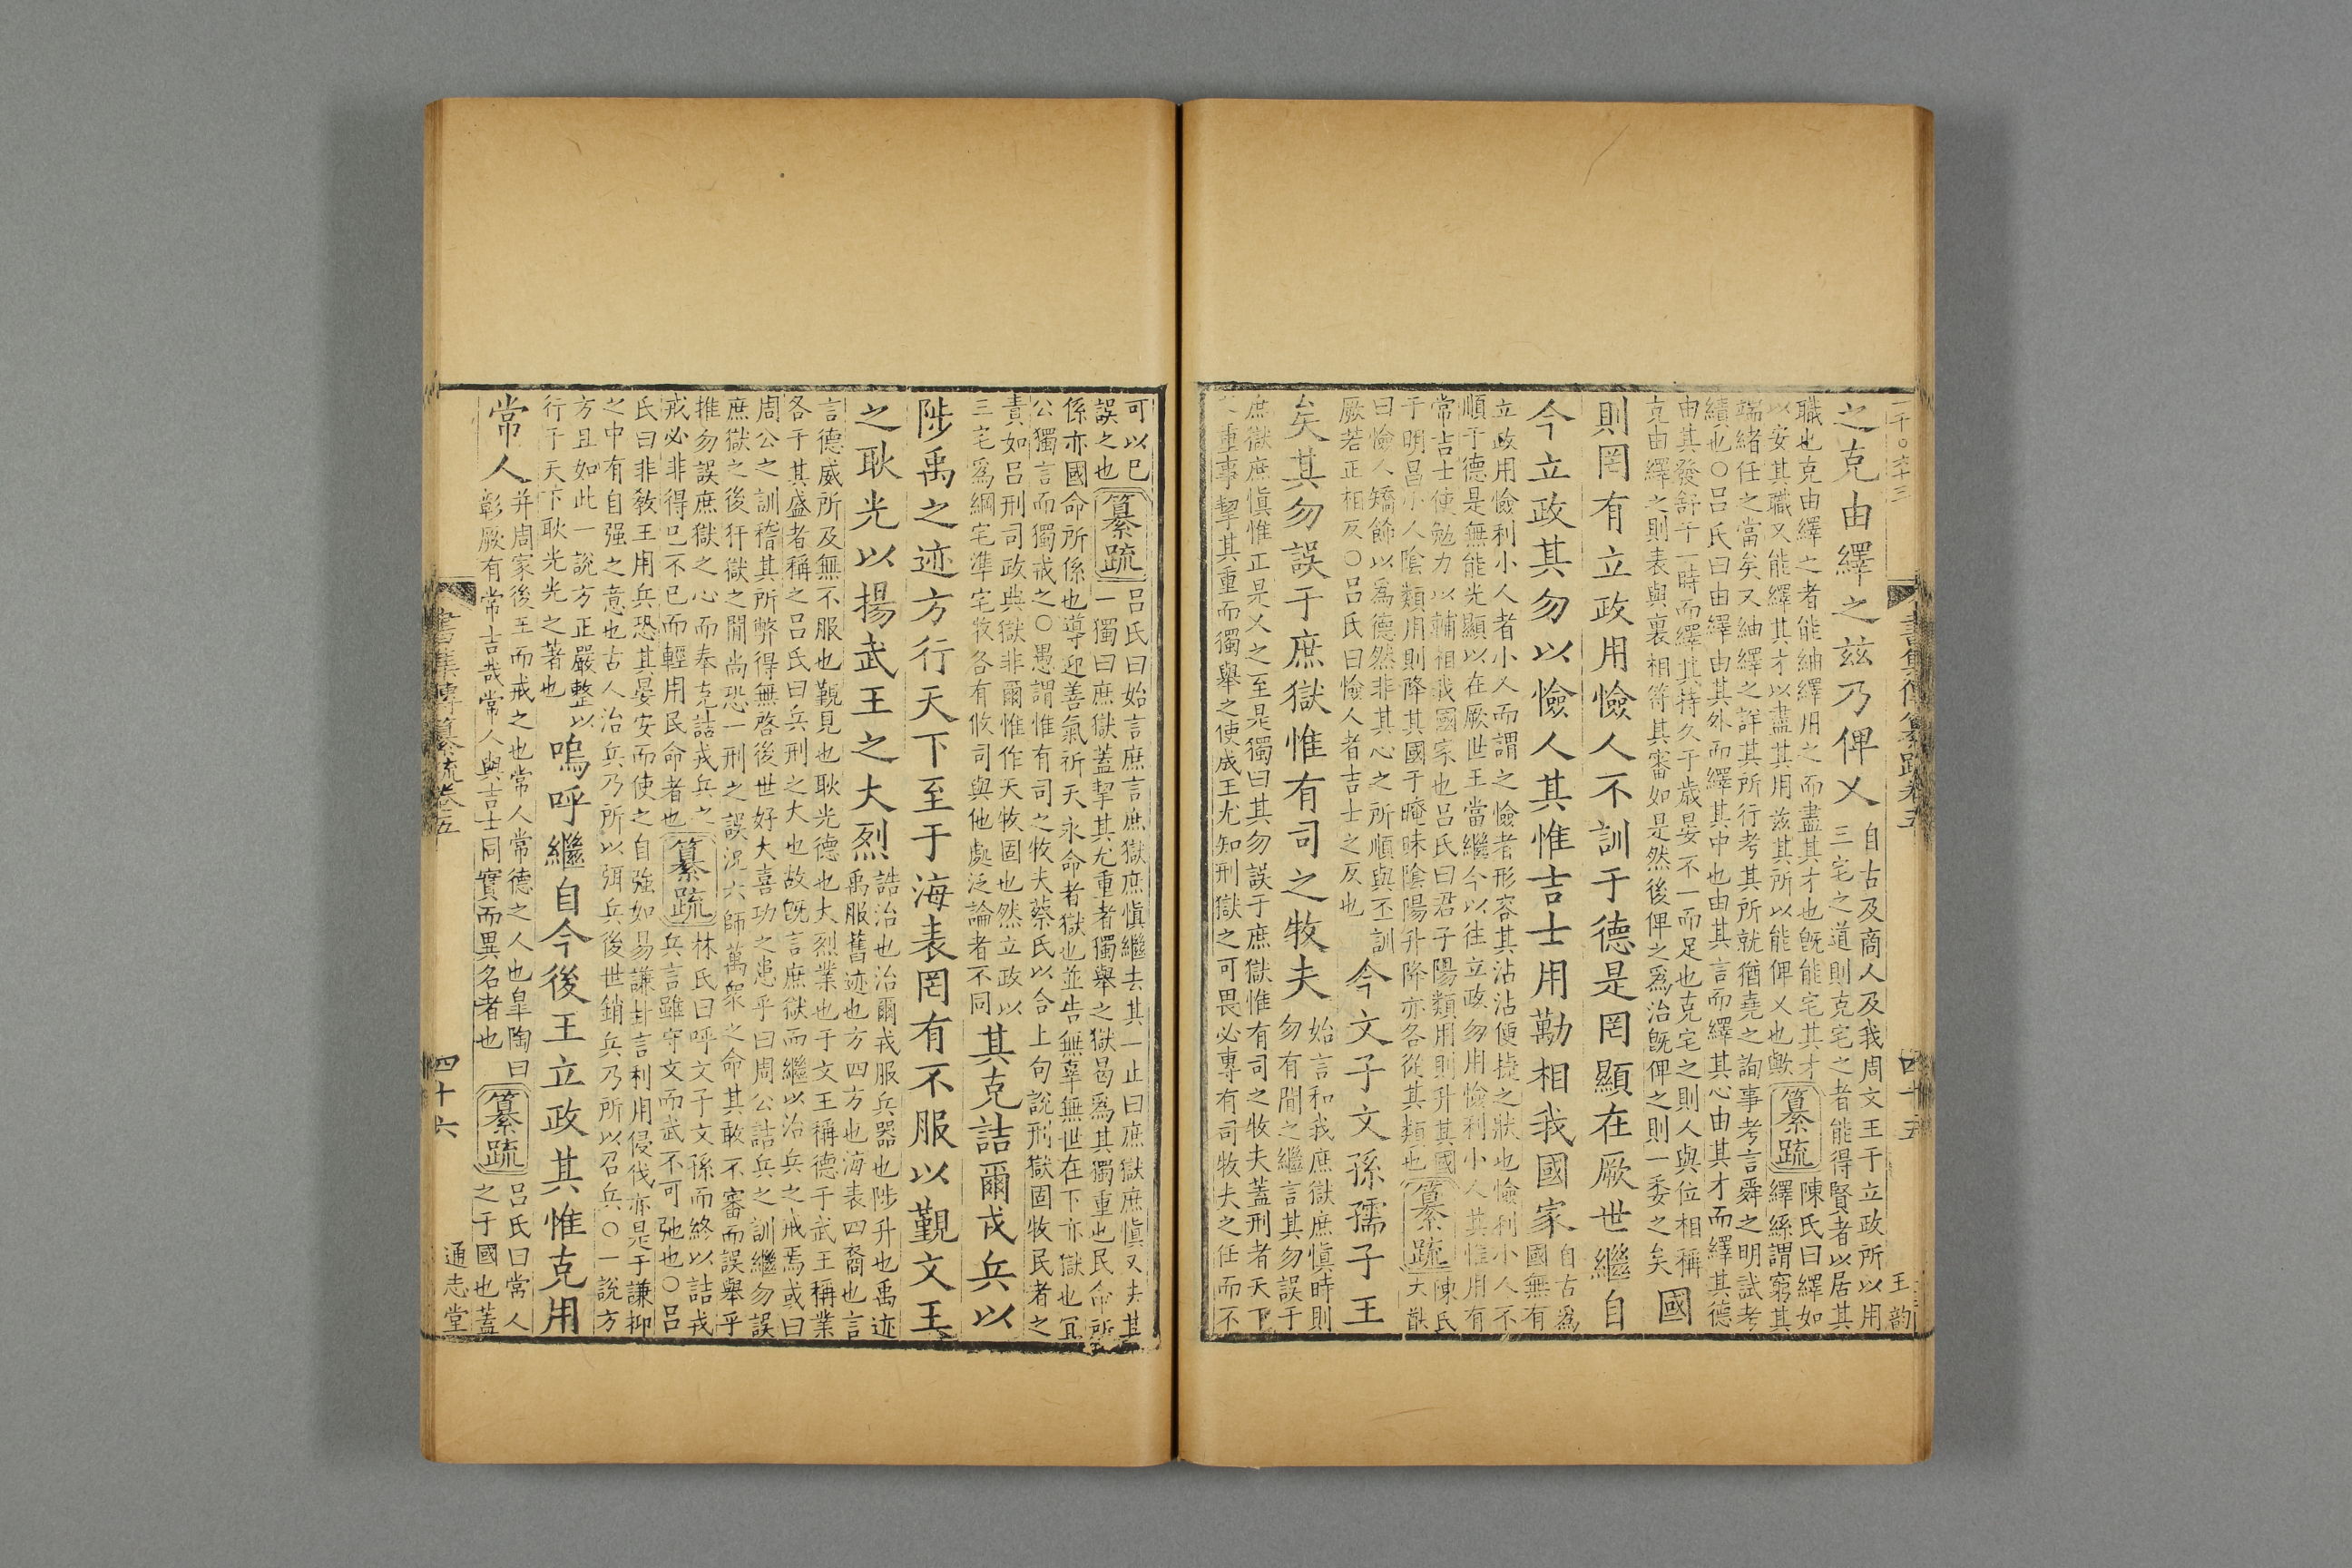 之克由繹之茲乃俾乂
自古及商人及我周文王于立政所以用
三宅之道則克宅之者能得賢者以居其
職也克由繹之者能紬繹用之而盡其才也旣能宅其才
以安其職又能繹其才以盡其用茲其所以能俾乂也歟
纂疏
陳氏曰繹如
繹絲謂窮其
端緒任之當矣又紬繹之詳其所行考其所就猶堯之詢事考言舜之明試考
績也○呂氏曰由繹由其外而繹其中也由其言而繹其心由其才而繹其德
由其發舒于一時而繹其持久于歲晏不一而足也克宅之則人與位相稱
克由繹之則表與裏相符其審如是然後俾之爲治旣俾之則一委之矣
國
則罔有立政用憸人不訓于德是罔顯在厥世繼自
今立政其勿以憸人其惟吉士用勱相我國家
自古爲
國無有
立政用憸利小人者小人而謂之憸者形容其沾沾便捷之狀也憸利小人不
順于德是無能光顯以在厥世王當繼今以往立政勿用憸利小人其惟用有
常吉士使勉力以輔相我國家也呂氏曰君子陽類用則升其國
于明昌小人陰類用則降其國于晻昧陰陽升降亦各從其類也
纂疏
陳氏
大猷
曰憸人矯飾以爲德然非其心之所順與不訓
厥若正相反○呂氏曰憸人者吉士之反也
今文子文孫孺子王
矣其勿誤于庶獄惟有司之牧夫
始言和我庶獄庶愼時則
勿有閒之繼言其勿誤于
庶獄庶愼惟正是乂之至是獨曰其勿誤于庶獄惟有司之牧夫蓋刑者天下
之重事挈其重而獨舉之使成王尤知刑獄之可畏必專有司牧夫之任而不
可以已
誤之也
纂疏
呂氏曰始言庶言庶獄庶愼繼去其一止曰庶獄庶愼又去其
一獨曰庶獄蓋挈其尤重者獨舉之獄曷爲其獨重也民命所
係亦國命所係也導迎善氣祈天永命者獄也並告無辜無世在下亦獄也宜
公獨言而獨戒之○愚謂惟有司之牧夫蔡氏以合上句說刑獄固牧民者之
責如呂刑司政典獄非爾惟作天牧固也然立政以
三宅爲綱宅準宅牧各有攸司與他處泛論者不同
其克詰爾戎兵以
陟禹之迹方行天下至于海表罔有不服以覲文王
之耿光以揚武王之大烈
詰治也治爾戎服兵器也陟升也禹迹
禹服舊迹也方四方也海表四裔也言
言德威所及無不服也覲見也耿光德也大烈業也于文王稱德于武王稱業
各于其盛者稱之呂氏曰兵刑之大也故旣言庶獄而繼以治兵之戒焉或曰
周公之訓稽其所弊得無啓後世好大喜功之患乎曰周公詰兵之訓繼勿誤
庶獄之後犴獄之閒尚恐一刑之誤況六師萬衆之命其敢不審而誤舉乎
推勿誤庶獄之心而奉克詰戎兵之
戒必非得已不已而輕用民命者也
纂疏
林氏曰呼文子文孫而終以詰戎
兵言雖守文而武不可弛也○呂
氏曰非敎王用兵恐其晏安而使之自強如易謙卦言利用侵伐亦是于謙抑
之中有自强之意也古人治兵乃所以弭兵後世銷兵乃所以召兵○一說方
方且如此一說方正嚴整以
行于天下耿光光之著也
嗚呼繼自今後王立政其惟克用
常人
并周家後王而戒之也常人常德之人也皐陶曰
彰厥有常吉哉常人與吉士同實而異名者也
纂疏
呂氏曰常人
之于國也蓋
書集傳纂疏卷五
四十五
四十六
通志堂